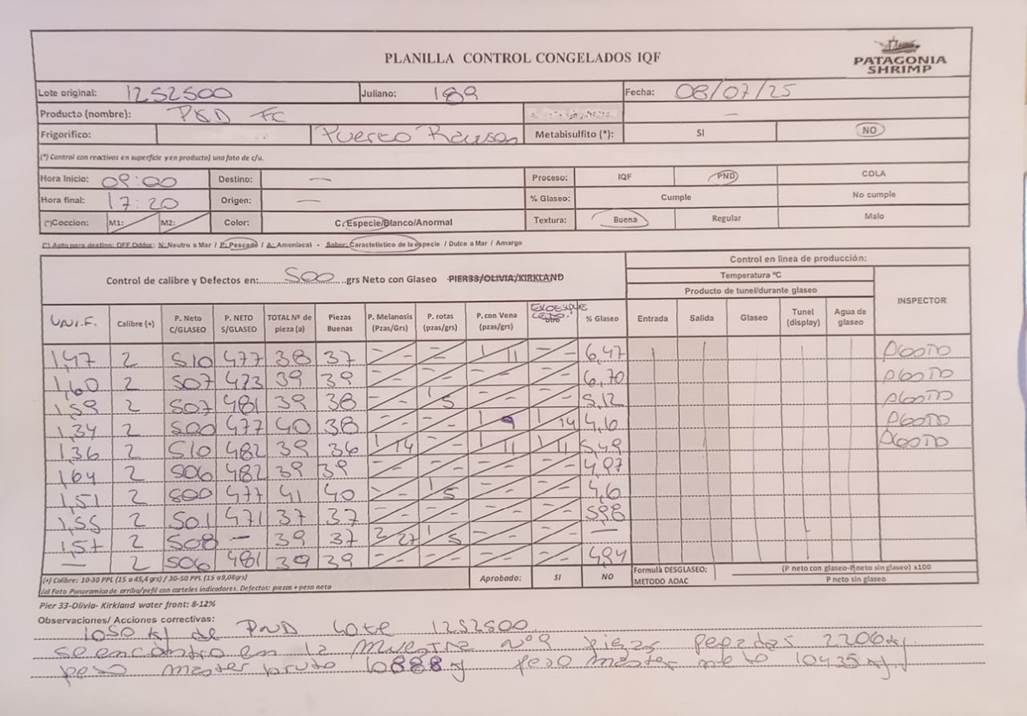 PLANILLA CONTROL CONGELADOS IQF
PATAGONIA
SHRIMP
Lote original: 1252500 Juliano: 189 Fecha: 08/07/25
Producto (nombre): PND FC —
Frigorífico: Puerto Rawson Metabisulfito (*): SI NO
(*) Control con reactivos en superficie y en producto) una foto de c/u.
Hora Inicio: 09:00 Destino: — Proceso: IQF PND COLA
Hora final: 17:20 Origen: — % Glaseo: Cumple No cumple
(*)Coccion: M1: M2: Color: C. Especie/Blanco/Anormal Textura: Buena Regular Malo
N: Neutro a Mar / P: Pescado / A: Amoniacal - Sabor: Caracteristico de la especie / Dulce a Mar / Amargo
Control de calibre y Defectos en: 500 grs Neto con Glaseo PIER33/OLIVIA/KIRKLAND
Control en linea de producción:
Temperatura °C
Producto de tunel/durante glaseo
INSPECTOR
UNIF. Calibre (+) P. Neto C/GLASEO P. NETO S/GLASEO TOTAL Nº de pieza (a) Piezas Buenas P. Melanosis (Pzas/Grs) P. rotas (pzas/grs) P. con Vena (pzas/grs) % Glaseo Entrada Salida Glaseo Tunel (display) Agua de glaseo
1,47 2 510 477 38 37 -/- -/- 1/11 -/- 6,47
1,60 2 507 473 39 39 -/- -/- -/- -/- 6,70
1,59 2 507 481 39 38 -/- 1/5 -/- -/- 5,12
1,34 2 500 477 40 38 -/- -/- 1/9 1/14 4,6
1,36 2 510 482 39 36 1/14 -/- 1/11 1/11 5,49
1,64 2 506 482 39 39 -/- -/- -/- -/- 4,97
1,51 2 500 477 41 40 -/- 1/5 -/- -/- 4,6
1,55 2 501 471 37 37 -/- -/- -/- -/- 5,98
1,57 2 508 — 39 37 2/27 1/5 -/- -/- —
— 2 506 481 39 39 -/- -/- -/- -/- 4,94
(+) Calibre: 10-30 PPL (15 a 45,4 grs) / 30-50 PPL (15 a 9,08grs)
(a) Foto Panoramica de arriba/pefil con carteles indicadores. Defectos: piezas + peso neto
Aprobado: SI NO
Formula DESGLASEO: (P neto con glaseo-Pneto sin glaseo) x100
METODO AOAC P neto sin glaseo
Pier 33-Olivia- Kirkland water front: 8-12%
Observaciones/ Acciones correctivas:
1050 kg de PND Lote 1252500
se encontro en la muestra nº9 piezas pegadas 2206
peso master bruto 10888 g peso master neto 10435